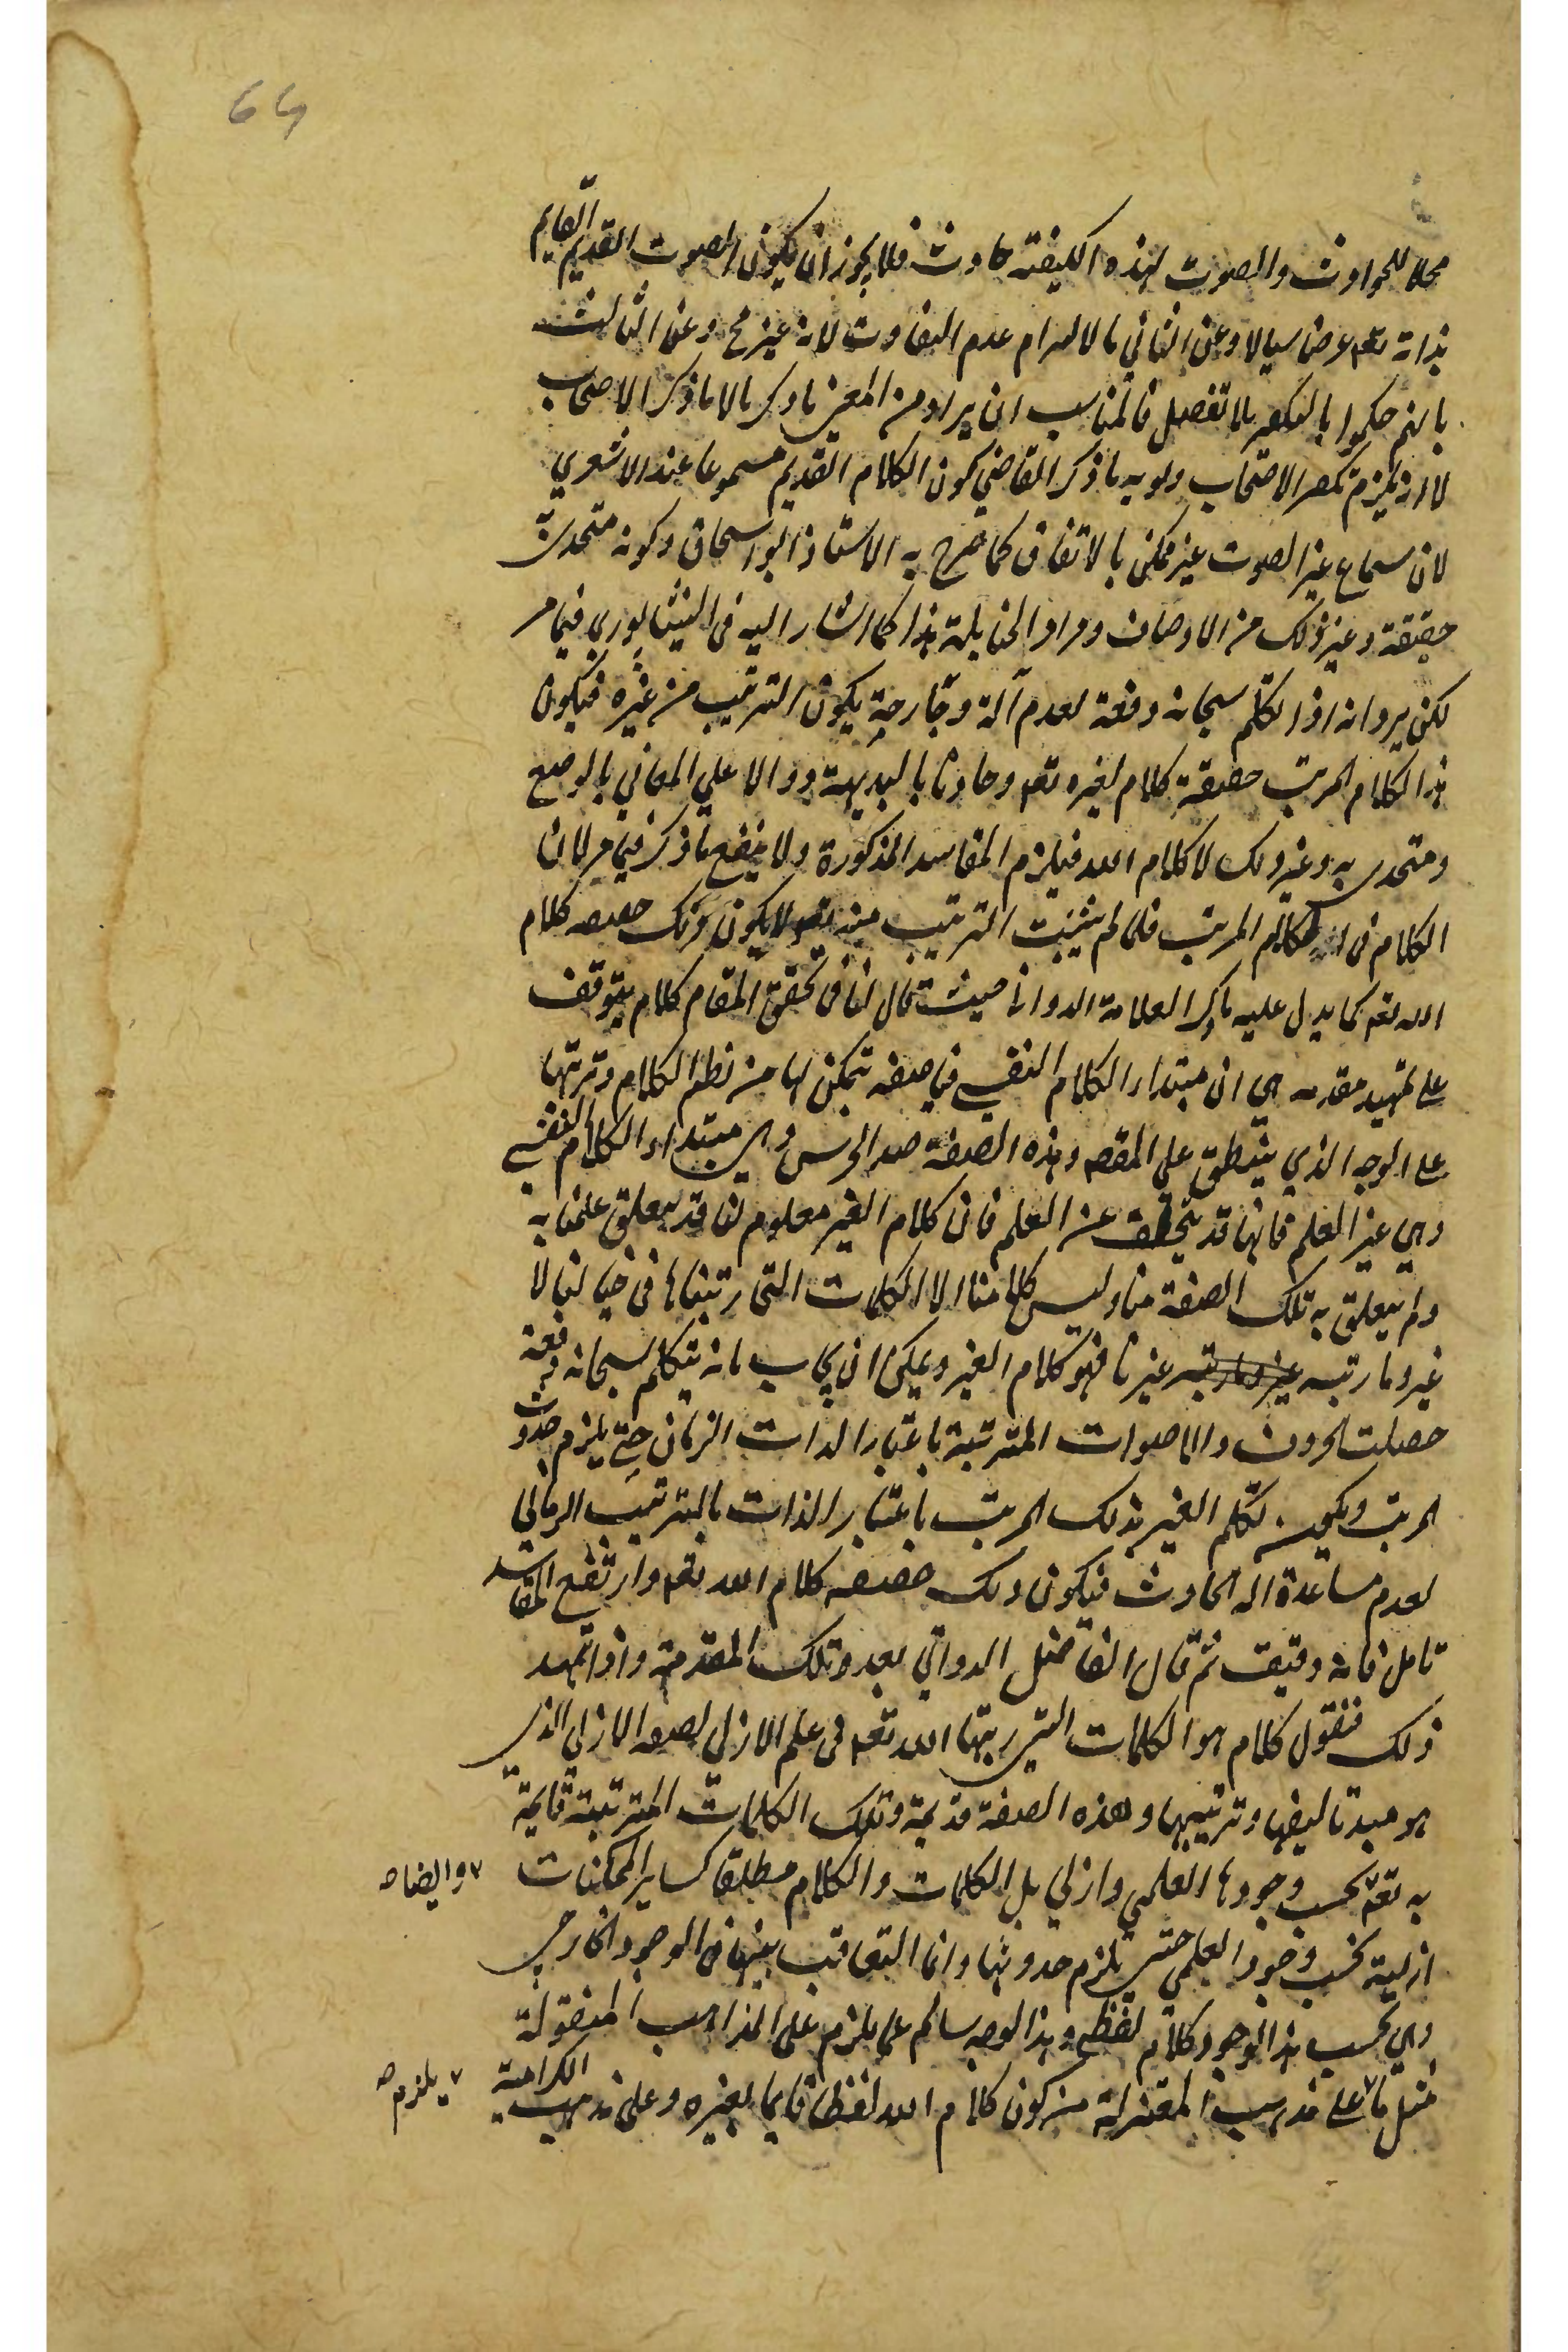 64
محلا للحوادث والصوت لهذه الكيفية حادث فلا يجوز ان يكون الصوت القديم القايم
بذاته تعه عرضا سيالا وعن الثاني بالالتزام عدم التفاوت لانه غير مح وعن الثالث
بانهم حكموا بالتكفير بلا تفصيل فالمناسب ان يراد من المعنى ما ذكرنا لا ما ذكر الاصحاب
لانه يلزم تكفير الاصحاب ما ذكر القاضي كون الكلام القديم مسموعا عند الاشعري
لان سماع غير الصوت غير ممكن بالاتفاق كما صرح به الاستاذ ابو اسحاق وكونه متحدى به
حقيقة وغير ذلك من الاوصاف ومراد الحنابلة هذا كما اشار اليه في النيشابوري فيما مر
لكن يرد انه اذا تكلم سبحانه دفعة لعدم آلة وجارحة يكون الترتيب من غيره فيكون
هذا الكلام المرتب حقيقة كلام لغيره تعه وحادثا بالبديهة ودالا على المعاني بالوضع
ومتحدى به وغير ذلك لا كلام الله فيلزم المفاسد المذكورة ولا ينفع ما ذكر فيما مر لان
الكلام في الكلام المرتب فلما لم يثبت الترتيب منه تعه لا يكون ذلك حقيقة كلام
الله تعه كما يدل عليه ما ذكر العلامة الدواني حيث قال لنا في تحقيق المقام كلام يتوقف
على تمهيد مقدمة هي ان مبتداء الكلام النفسي فينا صفة نتمكن بها من نظم الكلام وترتبها
على الوجه الذي ينطبق على المقصد وهذه الصفة ضد الخرس وهي مبتداء الكلام النفسي
وهي غير العلم فانها قد يتخلف عن العلم فان كلام الغير معلوم لنا قد يتعلق علمنا به
ولم يتعلق به تلك الصفة منا وليس كلامنا الا الكلمات التي رتبناها في خيالنا لا
غير وما رتبه غيرنا فهو كلام الغير ويمكن ان يجاب بانه يتكلم سبحانه دفعة
حصلت الحروف والاصوات المترتبة باعتبار الذات الزمان حتى يلزم حدوث
المرتب تكلم الغير بذلك المرتب باعتبار الذات بالترتيب الزماني
لعدم مساعدة اله الحادث فيكون ذلك حقيقة كلام الله تعه وارتفع المفاسد
تامل فانه دقيق ثم قال الفاضل الدواني بعد تلك المقدمة واذا تمهد
ذلك فنقول كلام هو الكلمات التي رتبها الله تعه في علم الازلي بصفة الازلي الذي
هو مبدء تاليفها وترتيبها وهذه الصفة قديمة وتلك الكلمات المترتبة قايمة
به تعه بحسب وجودها العلمي وازلي بل الكلمات والكلام مطلقا كساير الممكنات ٧ وايضا صح
ازلية بحسب وجود العلمي حتى يلزم حدوثها وانما التعاقب بينها في الوجود الخارجي
وهي بحسب هذا الوجود كلام لفظي وهذا الوجه سالم عما يلزم على المذاهب المنقولة
مثل ما ٧ على مذهب المعتزلة من كون كلام الله لفظا قايما بغيره وعلى مذهب الكرامية ٧ يلزم صح